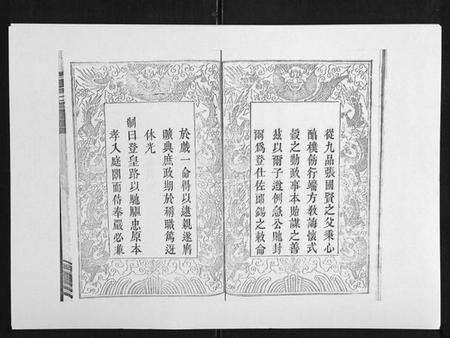 從九品張國賢之父秉心
醕樸飭行端方敎誨懷式
穀之勤政事本貽謀之善
兹以爾子遵例急公貤封
爾爲登仕佐郎錫之敕命
於戲一命得以逮親遂膺
曠典庶政期於稱職篤迓
休光
制曰登皇路以馳驅忠原本
孝入庭闈而侍奉嚴必兼